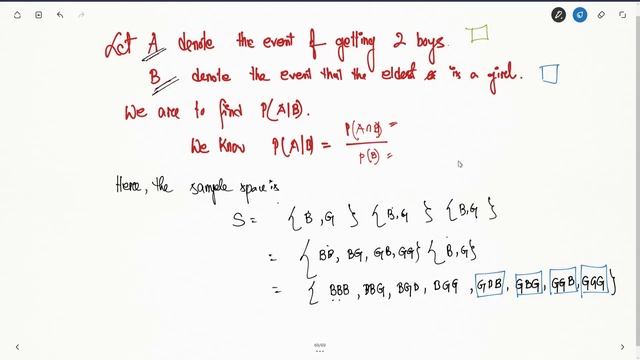 Let A denote the event of getting 2 boys.
B denote the event that the eldest is a girl.
We are to find P(A|B).
We know P(A|B) = P(A∩B) = / P(B) =
Here, the sample space is
S = {B, G} {B, G} {B, G}
= {BB, BG, GB, GG} {B, G}
= {BBB, BBG, BGB, BGG, GBB, GBG, GGB, GGG}